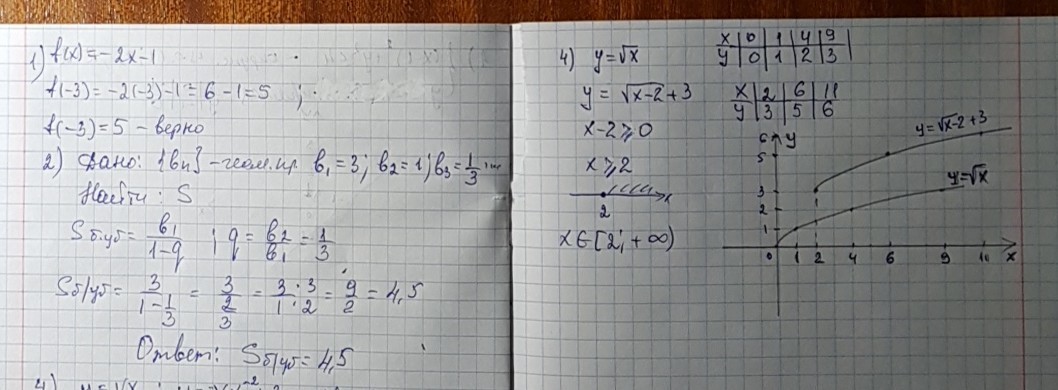 1) f(x)=-2x-1
f(-3)=-2(-3)-1=6-1=5 ;
f(-3)=5 - верно
2) Дано: {bn} - геом.пр b₁=3; b₂=1; b₃=1/3 ...
Найти: S
Sб.уб=b₁/(1-q) ; q=b₂/b₁=1/3
Sб/уб=3/(1-1/3)=3/(2/3)=(3·3)/(1·2)=9/2=4,5
Ответ: Sб/уб=4,5
4) y=√x
4) y=√x
x 0 1 4 9
y 0 1 2 3
y=√x-2+3
x 2 6 11
y 3 5 6
x-2⩾0
x⩾2
2
x∈[2;+∞)
6 y
5
3
2
1
0 1 2 4 6 9 10 x
y=√x-2+3
y=√x